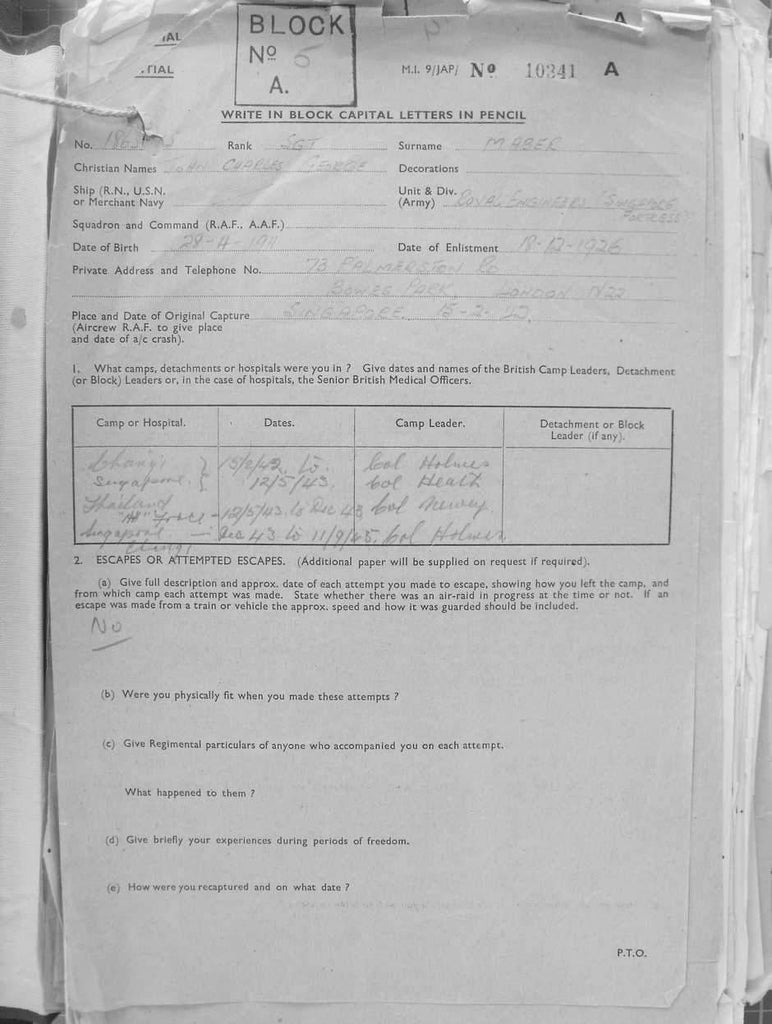 BLOCK
No 5
A.
IAL
TIAL
M.I. 9/JAP/ No 10341 A
WRITE IN BLOCK CAPITAL LETTERS IN PENCIL
No. Rank SGT Surname MABER
Christian Names JOHN CHARLES GEORGE Decorations
Ship (R.N., U.S.N. or Merchant Navy
Unit & Div. (Army) ROYAL ENGINEERS SINGAPORE FORTRESS
Squadron and Command (R.A.F., A.A.F.)
Date of Birth 28-4-1911 Date of Enlistment 18-12-1926
Private Address and Telephone No. 73 PALMERSTON RD
BOWES PARK LONDON N22
Place and Date of Original Capture SINGAPORE. 15-2-42.
(Aircrew R.A.F. to give place
and date of a/c crash).
1. What camps, detachments or hospitals were you in ? Give dates and names of the British Camp Leaders, Detachment
(or Block) Leaders or, in the case of hospitals, the Senior British Medical Officers.
Camp or Hospital. Dates. Camp Leader. Detachment or Block Leader (if any).
Changi } 15/2/42 to Col Holmes
Singapore { 12/5/43. Col Heath
Thailand
Force - 12/5/43 to Dec 43 Col Newey
Singapore - Dec 43 to 11/9/45. Col Holmes
Changi
2. ESCAPES OR ATTEMPTED ESCAPES. (Additional paper will be supplied on request if required).
(a) Give full description and approx. date of each attempt you made to escape, showing how you left the camp, and
from which camp each attempt was made. State whether there was an air-raid in progress at the time or not. If an
escape was made from a train or vehicle the approx. speed and how it was guarded should be included.
No
(b) Were you physically fit when you made these attempts ?
(c) Give Regimental particulars of anyone who accompanied you on each attempt.
What happened to them ?
(d) Give briefly your experiences during periods of freedom.
(e) How were you recaptured and on what date ?
P.T.O.